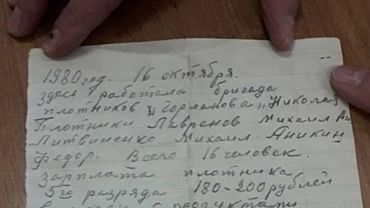 1980 год. 16 октября.
Здесь работала бригада
плотников "Горланова" Николая
Плотники Лавренов Михаил
Литвиненко Михаил Аникин
Федор. Всего 16 человек.
Зарплата плотника
5го разряда 180-200 рублей
продуктами